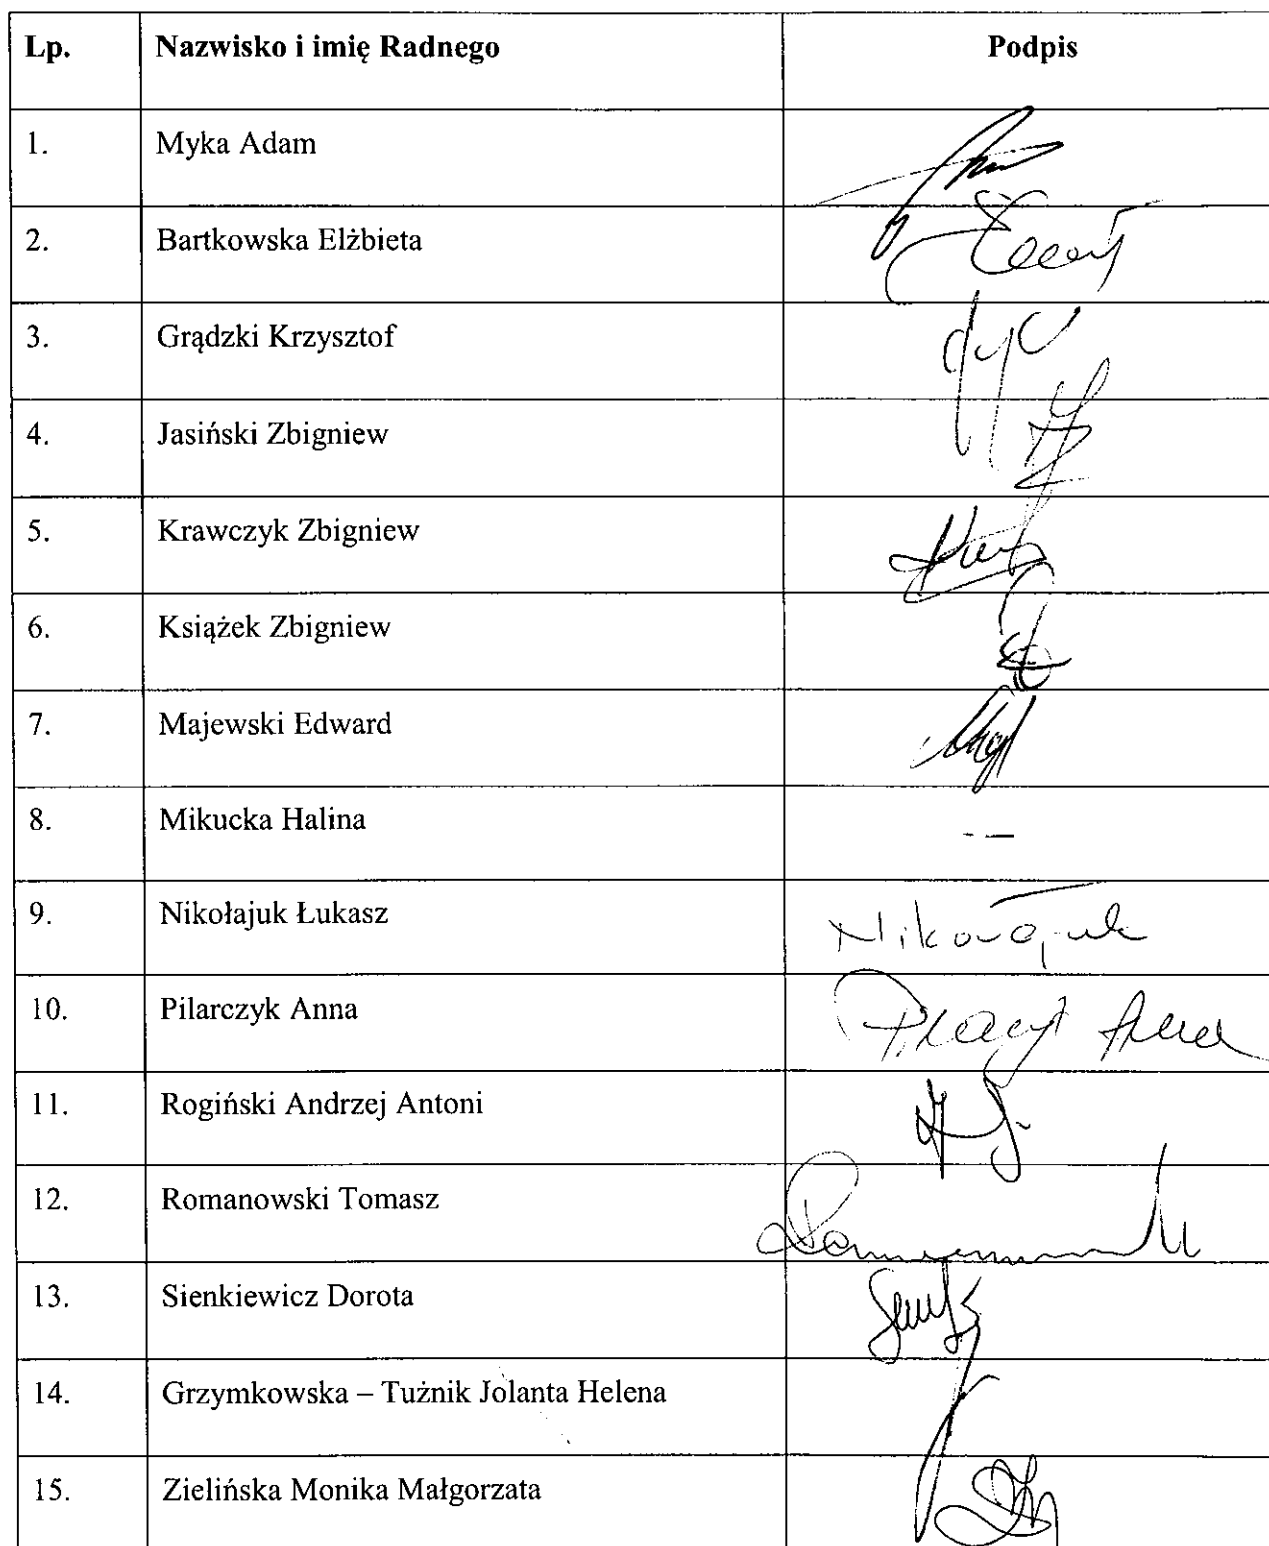 Lp. Nazwisko i imię Radnego Podpis
1. Myka Adam
2. Bartkowska Elżbieta
3. Grądzki Krzysztof
4. Jasiński Zbigniew
5. Krawczyk Zbigniew
6. Książek Zbigniew
7. Majewski Edward
8. Mikucka Halina - —
9. Nikołajuk Łukasz Nikołajuk
10. Pilarczyk Anna
11. Rogiński Andrzej Antoni
12. Romanowski Tomasz
13. Sienkiewicz Dorota
14. Grzymkowska – Tuźnik Jolanta Helena
15. Zielińska Monika Małgorzata